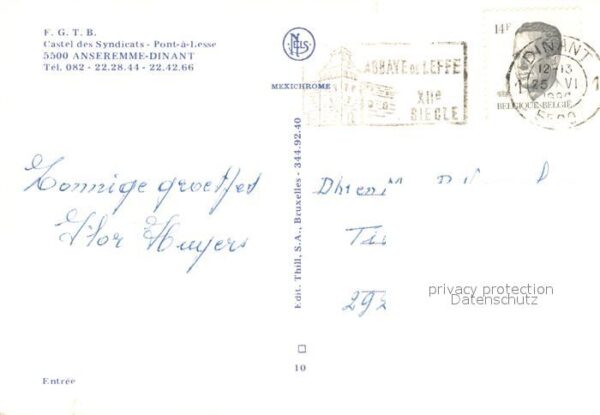 F. G. T. B.
Castel des Syndicats - Pont-à-Lesse
5500 ANSEREMME-DINANT
Tél. 082 - 22.28.44 - 22.42.66
NELS
MEXICHROME
ABBAYE DE LEFFE
XIIe
SIECLE
14F
BELGIQUE-BELGIË
DINANT
12-13
25 VI
5500
1 1
Zonnige groetjes
Flor Huyers
Edit. Thill, S.A., Bruxelles - 344.92.40
privacy protection
Datenschutz
10
Entrée